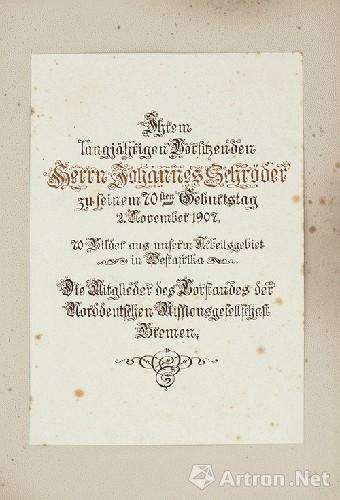 Ihrem
langjährigen Vorsitzenden
Herrn Johannes Schröder
zu seinem 70sten Geburtstag
2. November 1907.
70 Bilder aus unserm Arbeitsgebiet
in Westafrika.
Die Mitglieder des Vorstandes der
Norddeutschen Missionsgesellschaft
Bremen.
Artron.Net